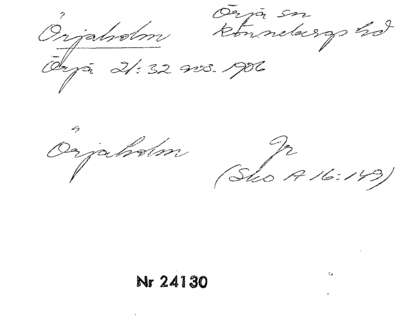 Örjaholm Örja sn
Rönnebergs hd
Örja 21:32 avs. 1906
Örjaholm Jr
(Sko A 16:149)
Nr 24130